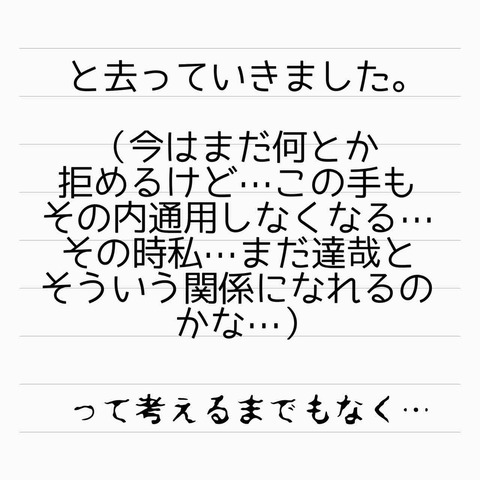 と去っていきました。
（今はまだ何とか
拒めるけど…この手も
その内通用しなくなる…
その時私…まだ達哉と
そういう関係になれるの
かな…）
って考えるまでもなく…